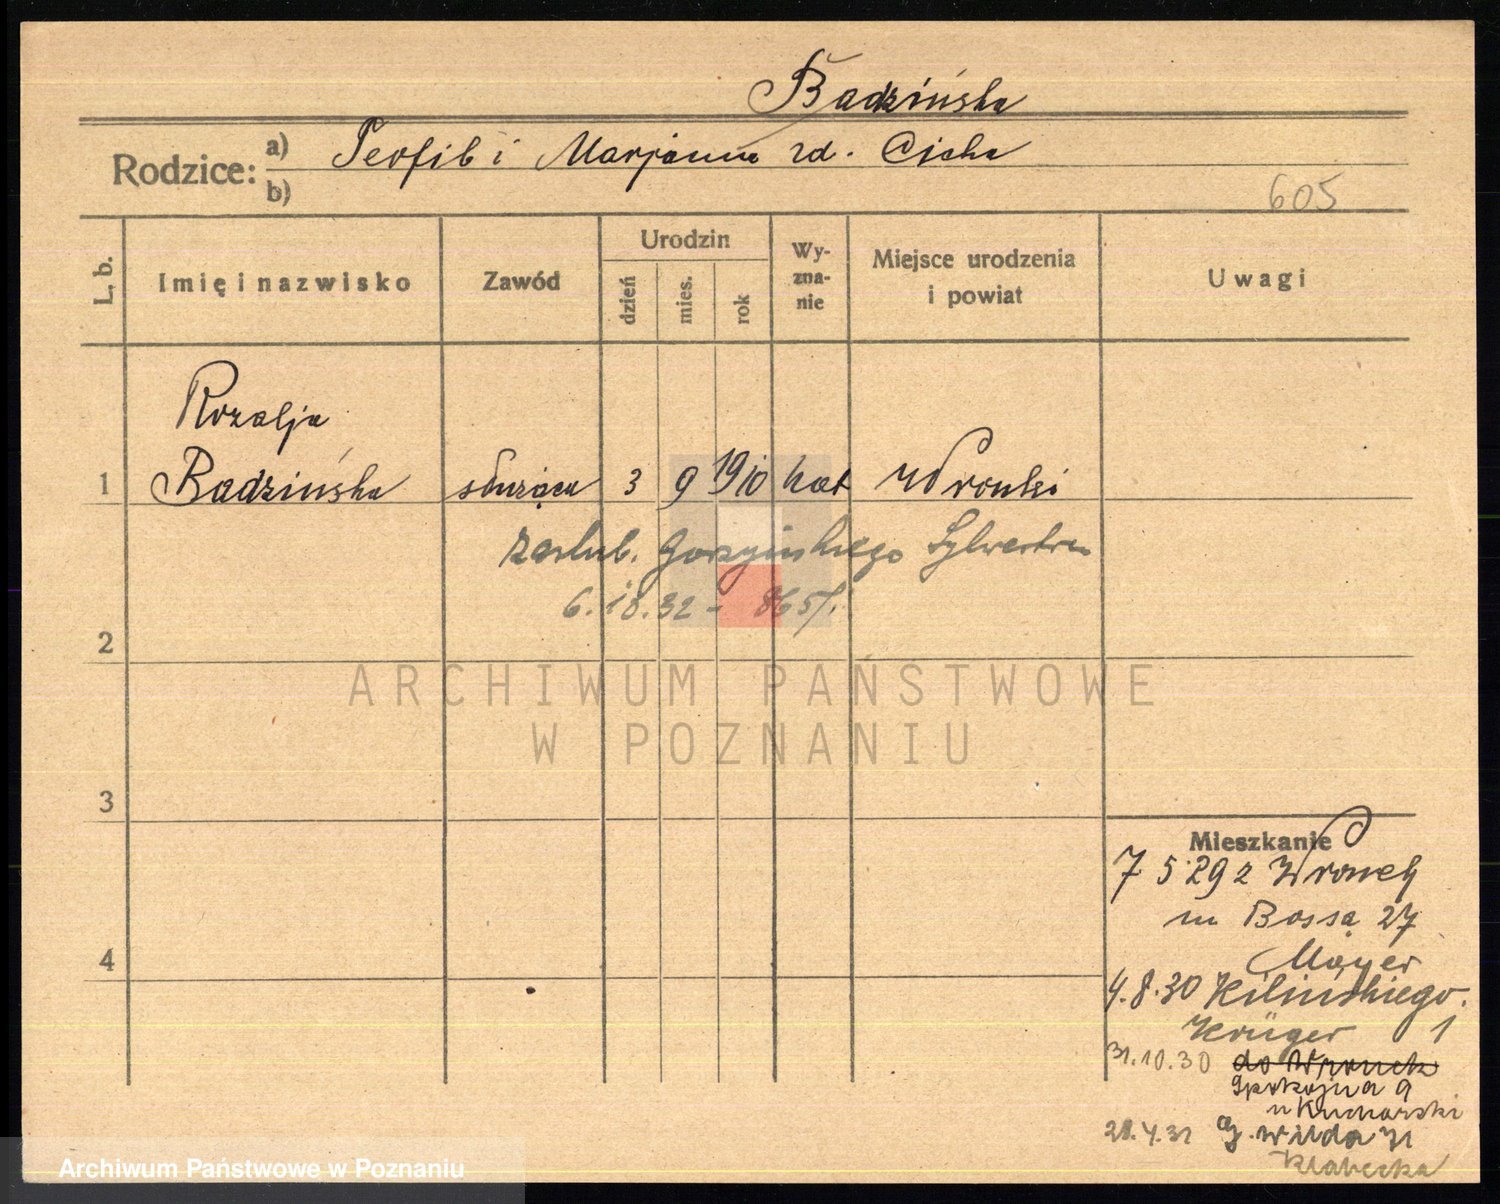 Badzińska
Rodzice: a) Teofil i Marjanna zd. Cicha
b)
605
L. b. Imię i nazwisko Zawód Urodzin dzień mies. rok Wy-zna-nie Miejsce urodzenia i powiat Uwagi
Rozalja
1 Badzińska służąca 3 9 1910 kat Wronki
zaślub. Gorzyńskiego Sylwestra
6. 18. 32 - 865/.
2
ARCHIWUM PAŃSTWOWE
W POZNANIU
3
Mieszkanie
7 5 29 z Wronek
27
Mayer
4
4.8.30 Kilińskiego.
Krüger 1
31.10.30 do Wronek
Spokojna 9
u Kucharski
28.4.31 G. Wilda 31
Archiwum Państwowe w Poznaniu